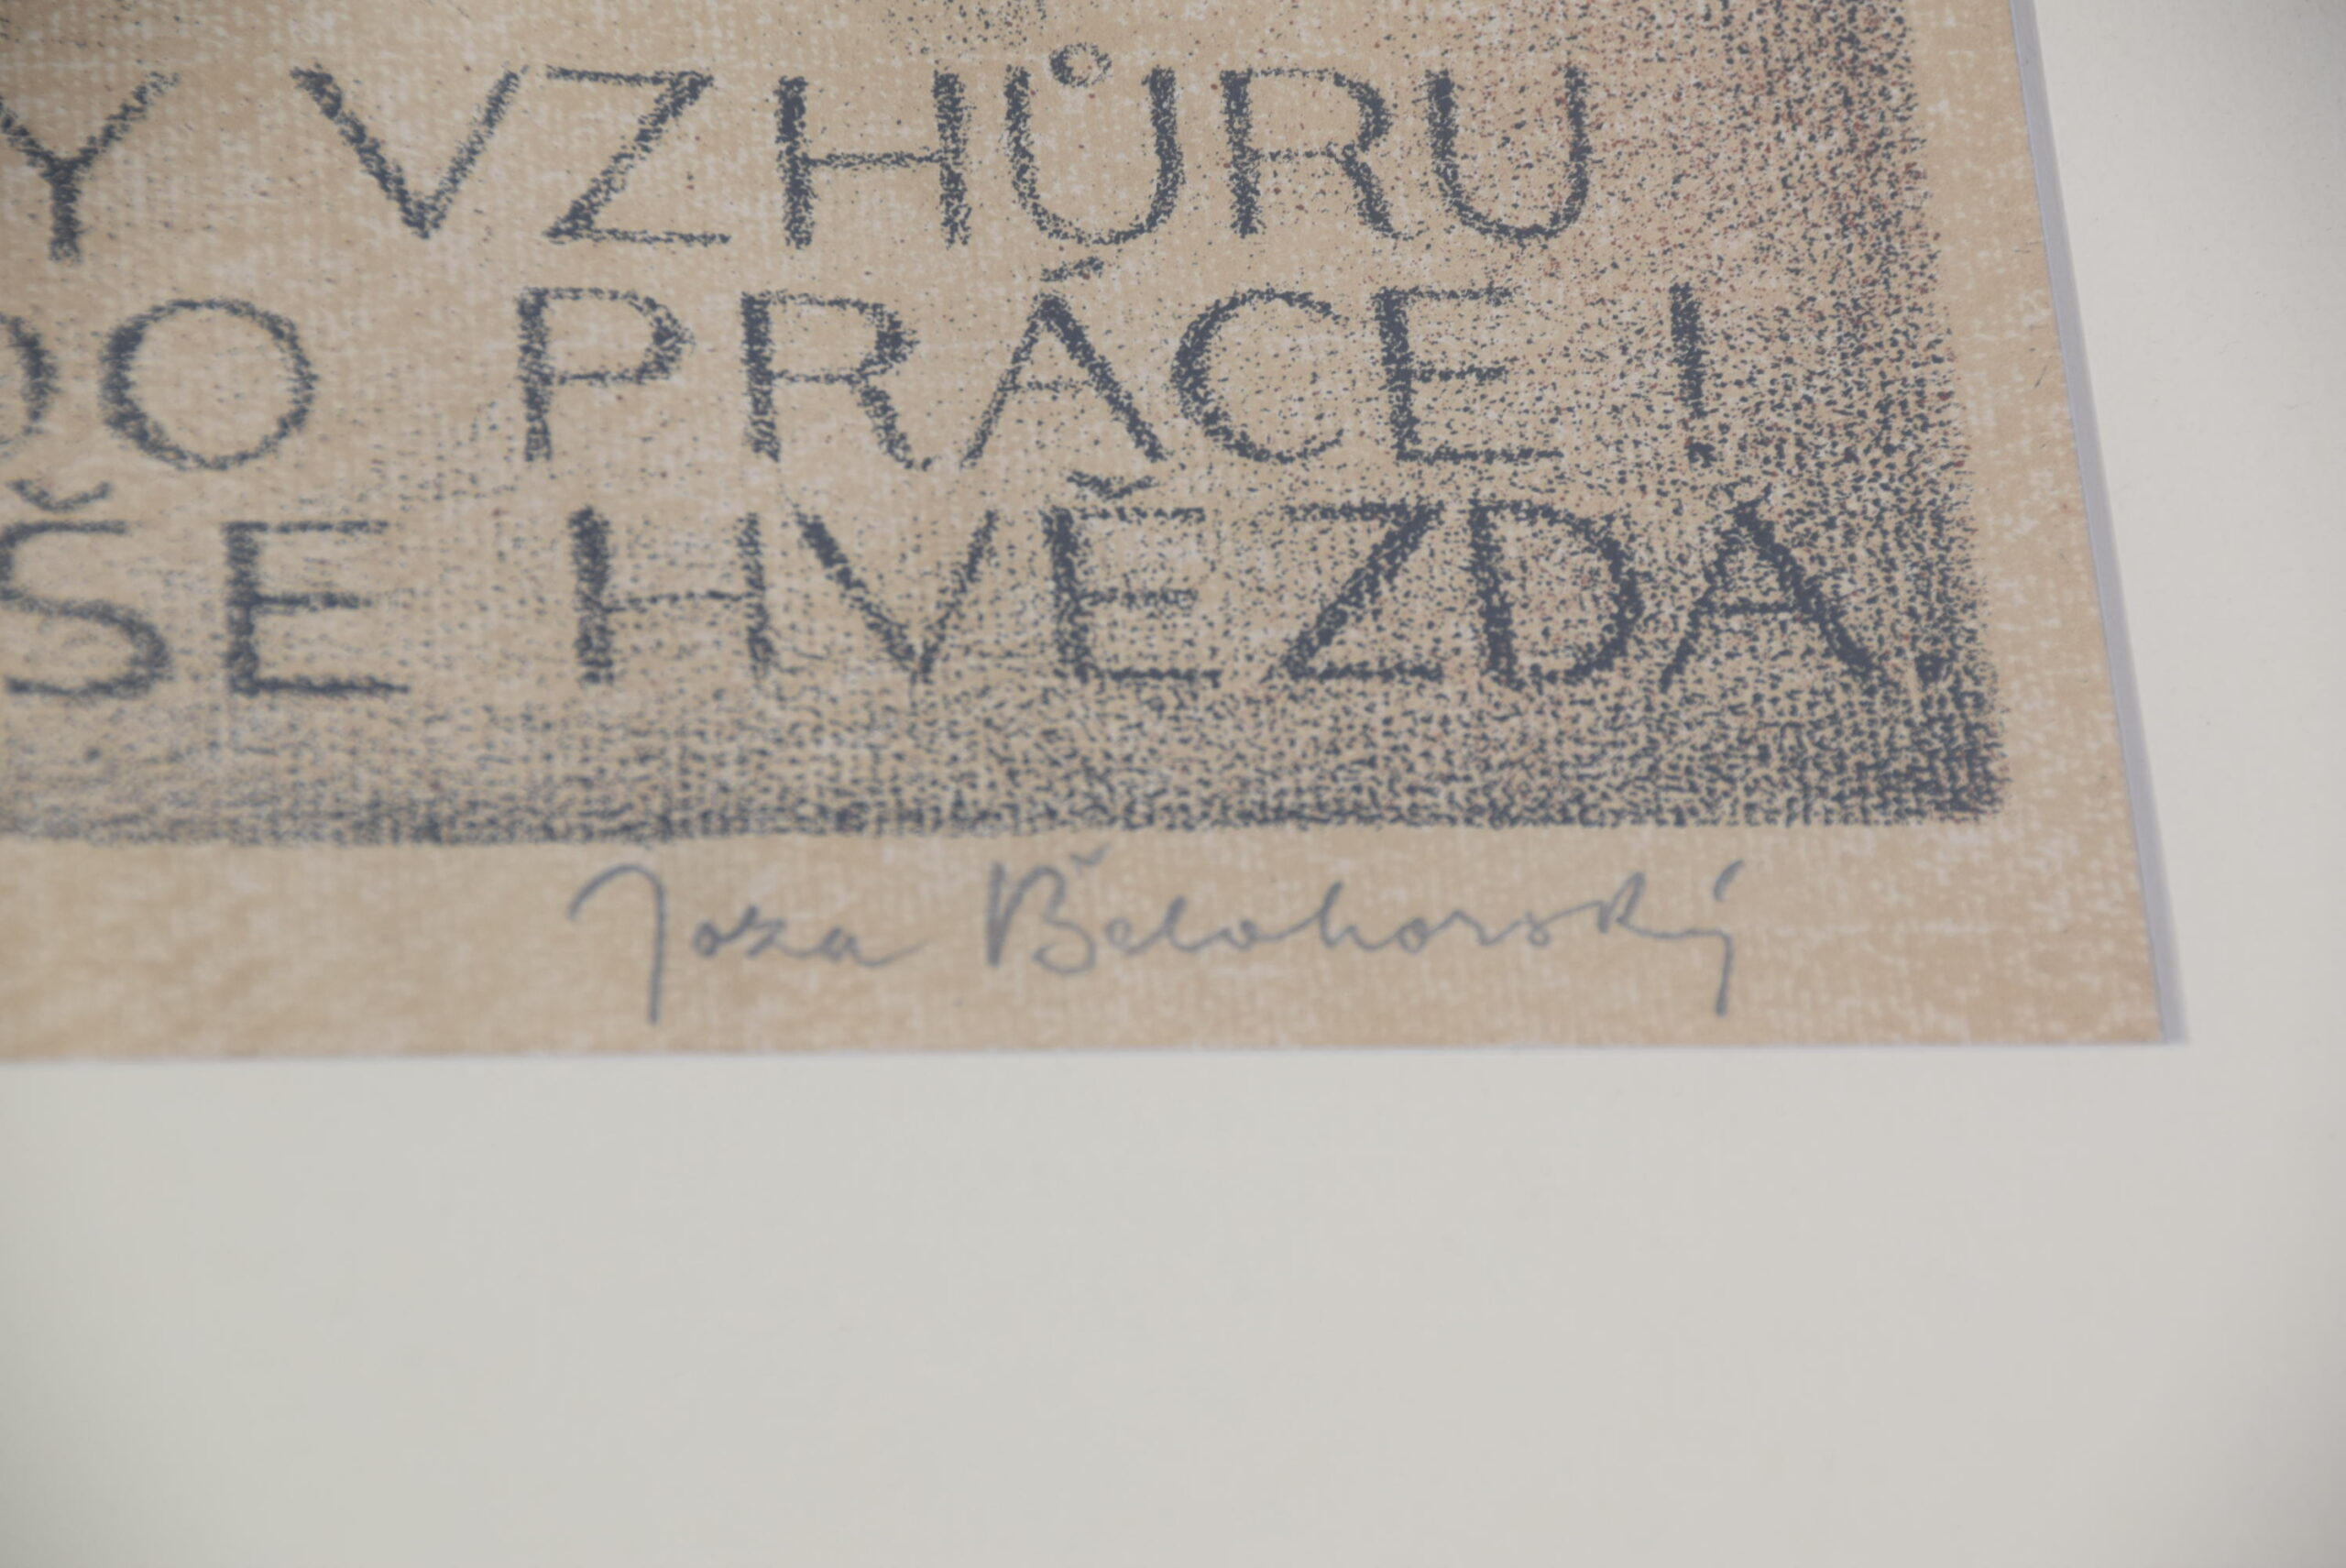 Y VZHŮRU
DO PRÁCE!
ŠE HVĚZDA.
Joza Bělohorský